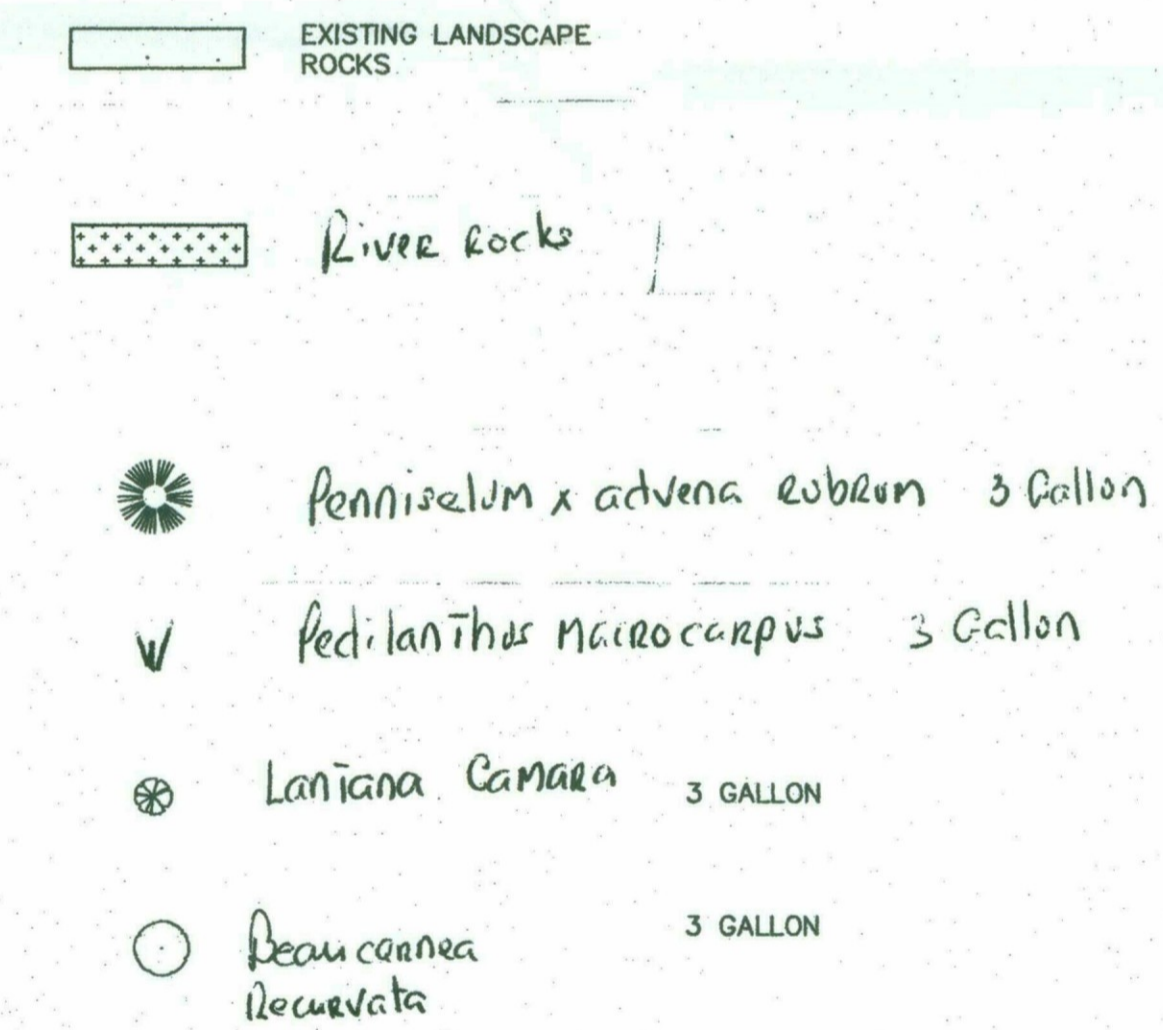 EXISTING LANDSCAPE
ROCKS
River Rocks
Penniselum x advena rubrum 3 Gallon
Pedilanthus Macrocarpus 3 Gallon
Lantana Camara 3 GALLON
Beaucarnea 3 GALLON
Recurvata